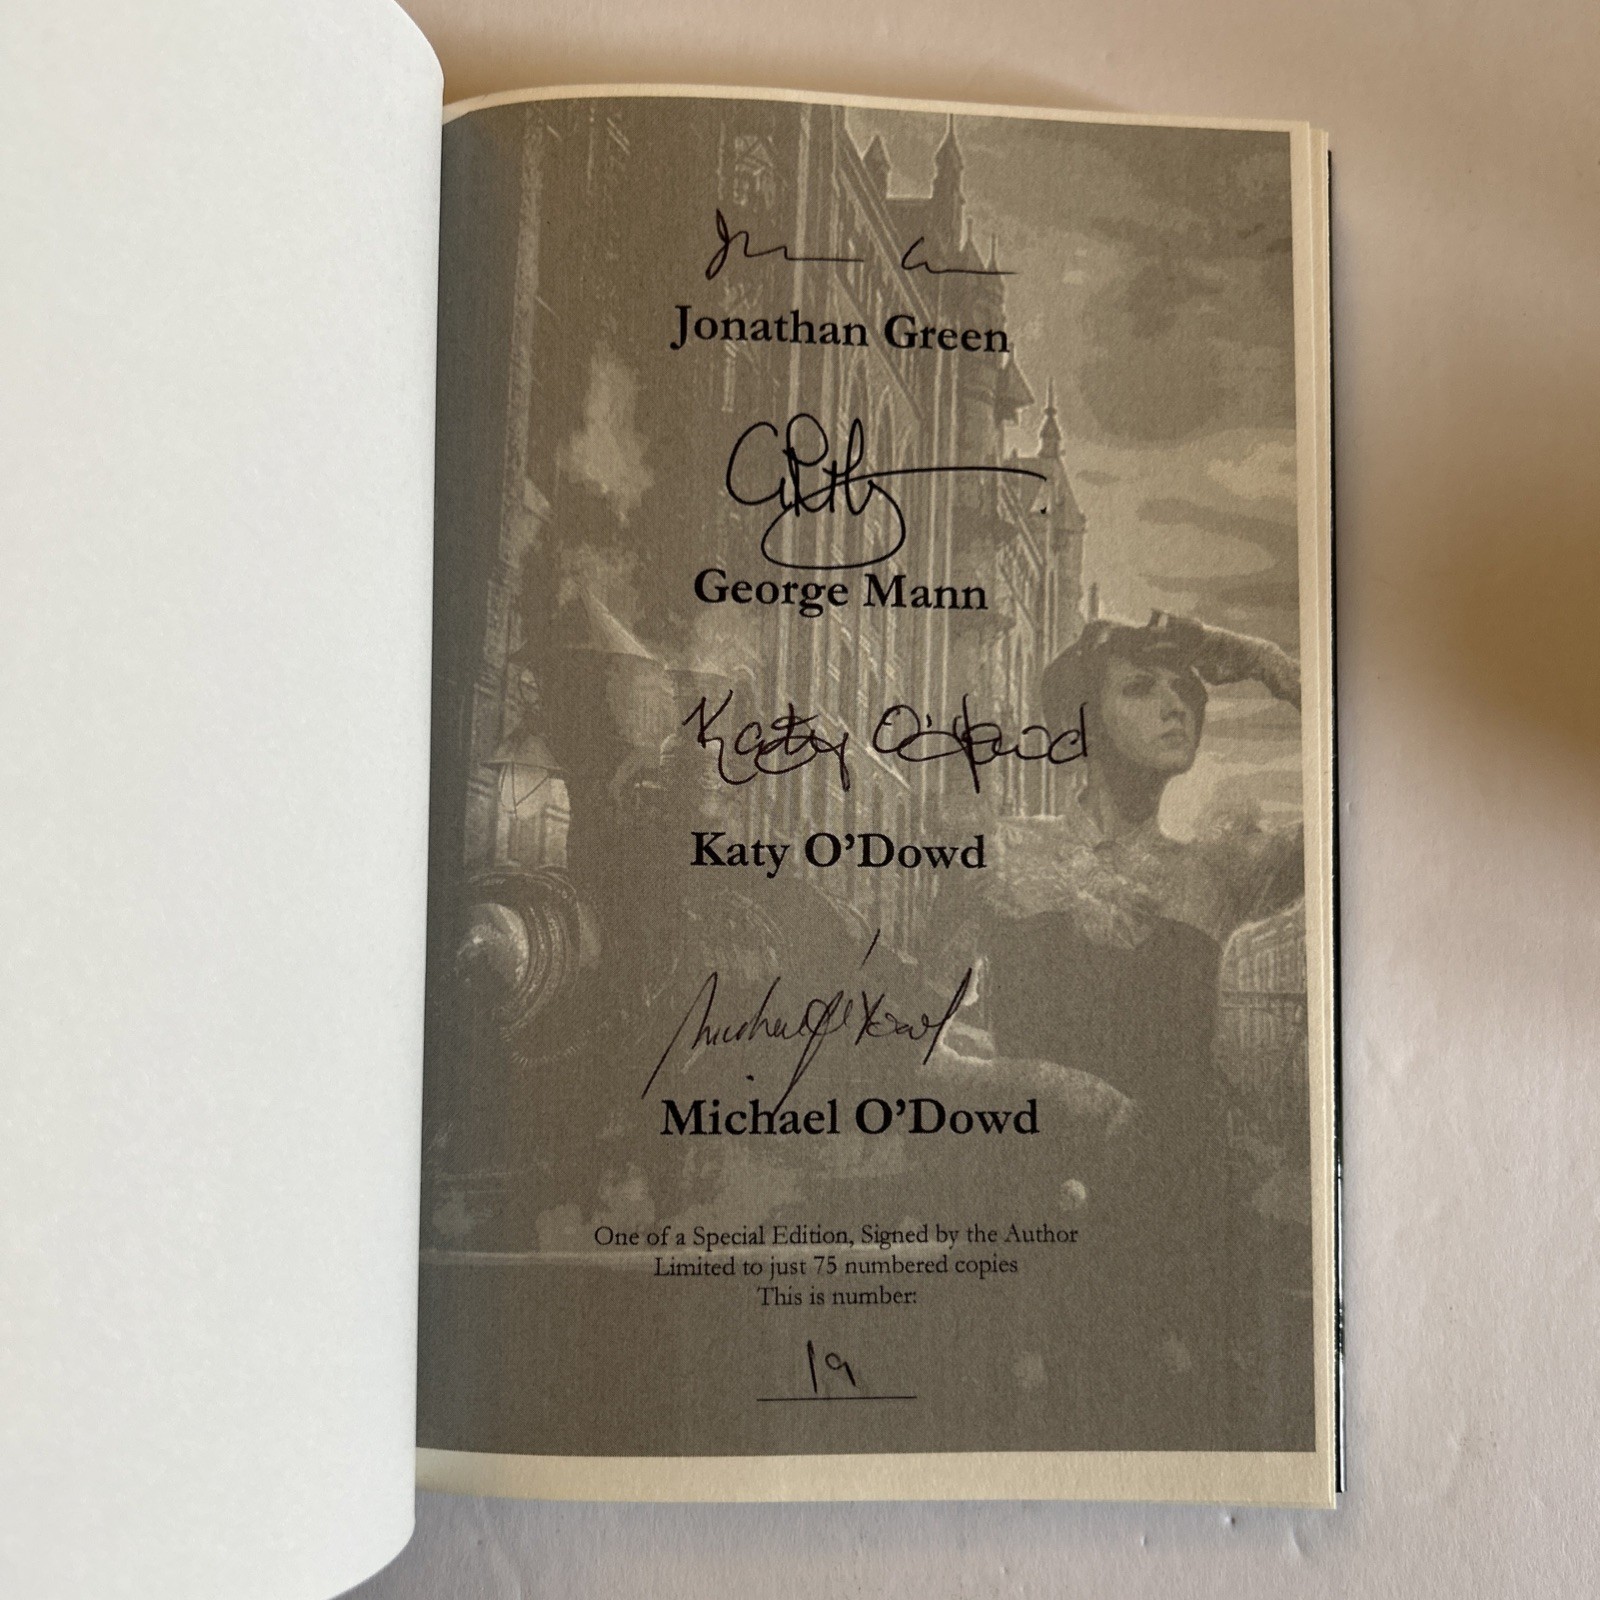 Jonathan Green
George Mann
Katy O'Dowd
Katy O’Dowd
Michael O'Dowd
Michael O’Dowd
One of a Special Edition, Signed by the Author
Limited to just 75 numbered copies
This is number:
19